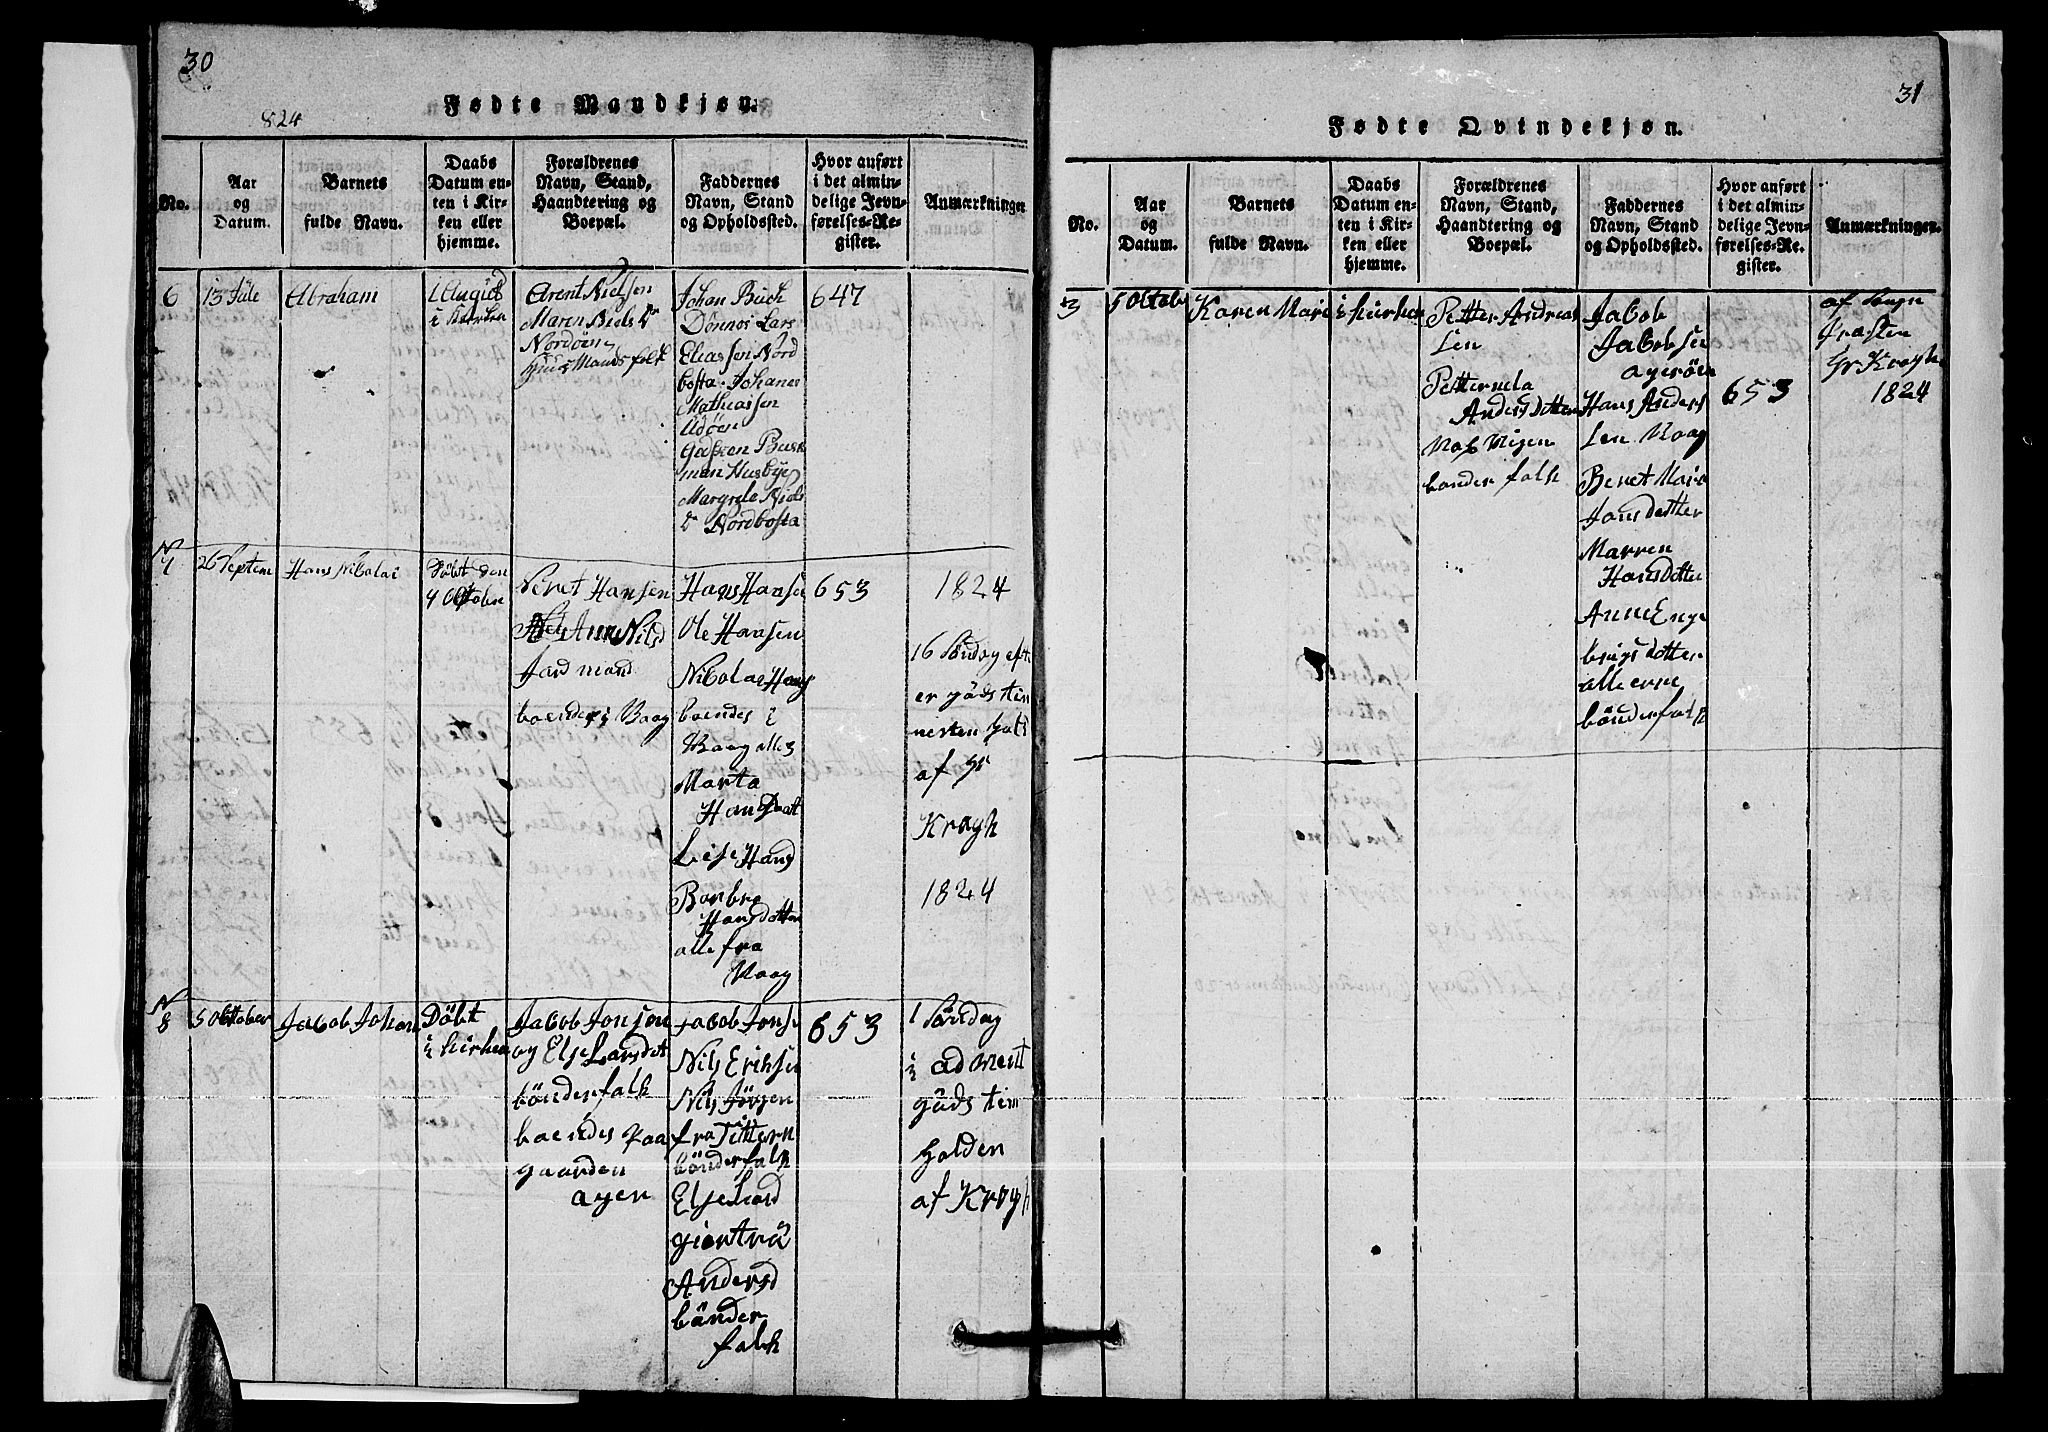 30
824
Fødte Mandkjøn.
No.
Aar
og
Datum.
Barnets
fulde Navn.
Daabs
Datum en-
ten i Kir-
ken eller
hjemme.
Forældrenes
Navn, Stand,
Haandtering og
Boepæl.
Faddernes
Navn, Stand
og Opholdssted.
Hvor anført
i det almin-
delige Jevn-
førelses-Re-
gister.
Anmærkninger
6
13 Jule
Abraham
1 August
i Kirken
Arent Nielsen
Maren Niels Dr
Nordøen
Huusmandsfolk
Johan Buch
Dønnes Lars
Eliassen Nord
bosta Johanes
Mathiassen
Man Husbye
Margrete Niels
Dr Nordbosta
647
N
7
26 Septem
Hans Nikolai
Døbt den
4 Oktober
Hansen
Anne Nilsd
Jordmand
boendes i Vaag
Hans Hansen
Ole Hansen
Nikolai Hans
boendes i
Vaag alles
Marta
Hansdaat
Lise Hans
Barbra
Hansdotter
alle fra
Vaag
653
1824
16 Søndag eft
er
nesten
af Hr
Kragh
1824
N
8
5 Oktober
Jakob Johan
Døbt
i kirken
Jakob Jonsen
og Else Larsdot
bönderfolk
boendes paa
gaarden
ager
Jakob Jons
Nils Eriksen
Nils Jörgen
fra
bönderfolk
Else Larsd
Andersd
bönder
folk
653
1 Söndag
i adment
güds tin
holden
af Kragh
31
Fødte Qvindekjøn.
No.
Aar
og
Datum.
Barnets
fulde Navn.
Daabs
Datum en-
ten i Kir-
ken eller
hjemme.
Forældrenes
Navn, Stand,
Haandtering og
Boepæl.
Faddernes
Navn, Stand
og Opholdssted.
Hvor anført
i det almin-
delige Jevn-
førelses-Re-
gister.
Anmærkninger.
3
5 Oktob
Karen Mari
i kirken
Petter Andreas
sen
Petternela
Andersdotter
bonder folk
Jakob
Jakobsen
ageröen
Hans Anders
sen Vaag
Beret Mari
Jonsdotter
Marren
Hansdotter
Anne Enge
brigsdotter
alle erne
bönderfolk
653
af Sogn
Præsten
Hr Kragh
1824